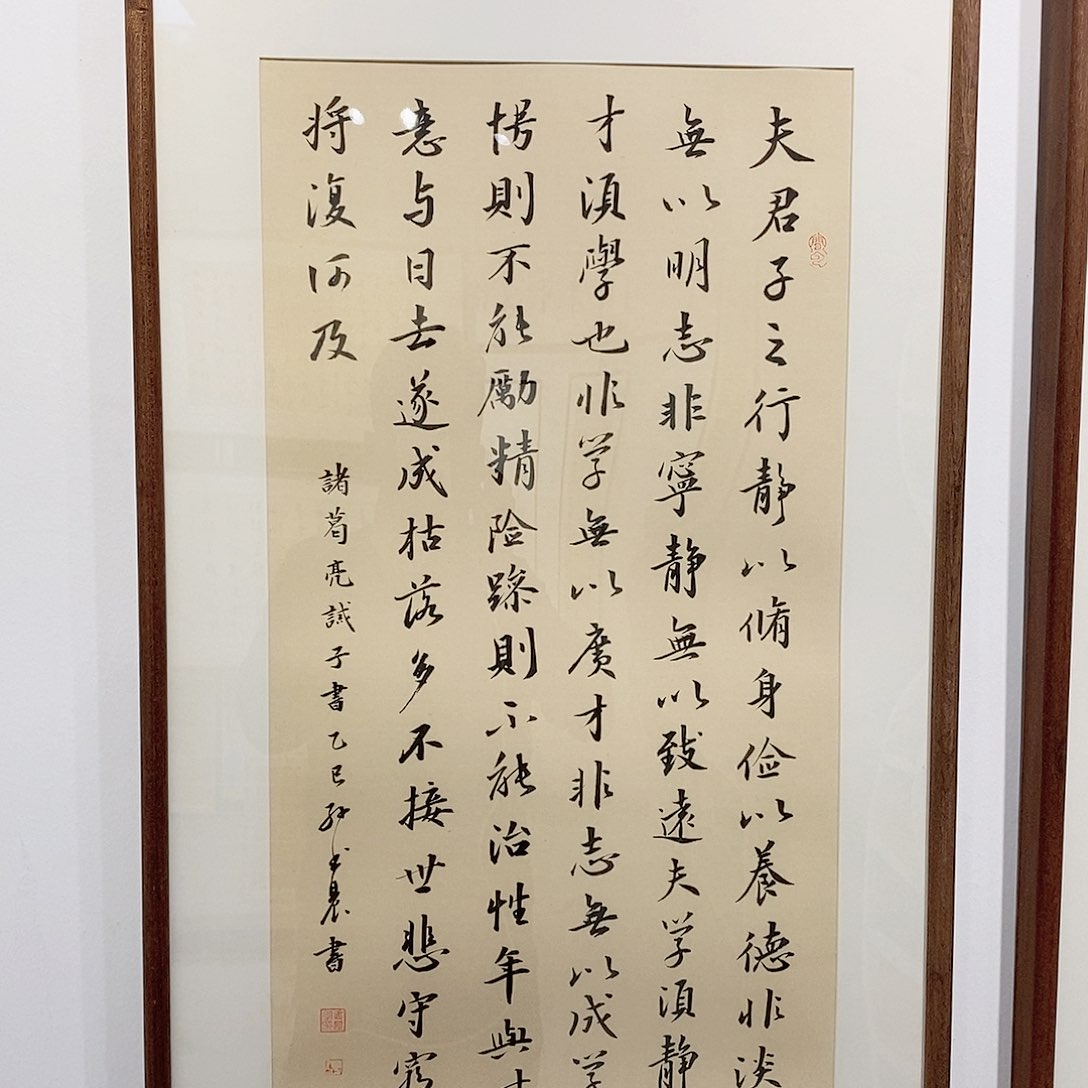 夫君子之行静以脩身俭以養德非淡
無以明志非寧静無以致遠夫学須静
才須學也非学無以廣才非志無以成学
慢則不能勵精险躁則不能治性年與
意与日去遂成枯落多不接世悲守窮
将復何及
諸葛亮誡子書乙巳書